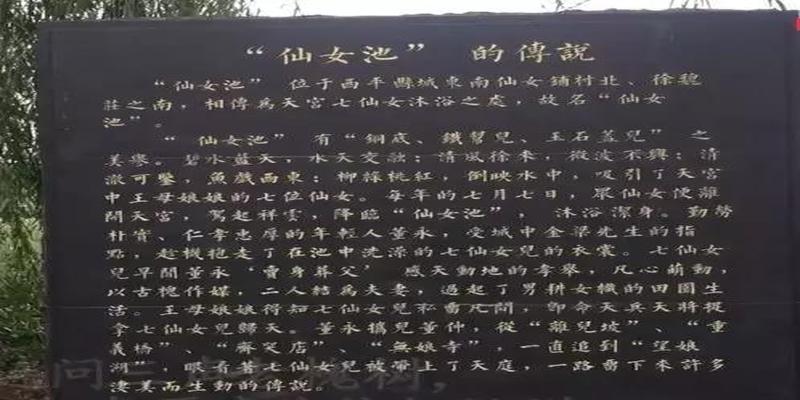 “仙女池” 的傳説
“仙女池” 位于西平縣城東南仙女鋪村北、徐魏
莊之南，相傳為天宮七仙女沐浴之處，故名“仙女
池”。
“仙女池” 有“銅底、鐵幫兒、玉石蓋兒” 之
美譽。碧水藍天，水天交融；清風徐來，微波不興；清
澈可鑒，魚戲西東；柳緑桃紅，倒映水中，吸引了天宮
中王母娘娘的七位仙女。每年的七月七日，眾仙女便離
開天宮，駕起祥雲，降臨“仙女池”，沐浴潔身。勤勞
朴實、仁孝忠厚的年輕人董永，受城中金梁先生的指
點，趁機抱走了在池中洗澡的七仙女兒的衣裳。七仙女
兒早聞董永‘賣身葬父’感天動地的孝舉，凡心萌動，
以古槐作媒，二人結為夫妻，過起了男耕女織的田園生
活。王母娘娘得知七仙女兒私留凡間，即命天兵天將捉
拿七仙女兒歸天。董永携兒董仲，從“離兒坡”、“重
義橋”、“齊笑店”、“無娘寺”，一直追到“望娘
湖”，眼看着七仙女兒被帶上了天庭，一路留下來許多
淒美而生動的傳説。
問三貞老槐树，